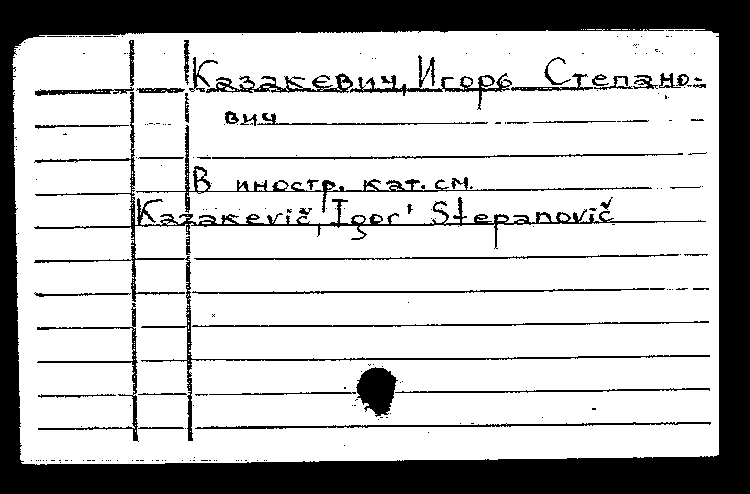 Казакевич, Игорь Степано-
вич
В иностр. кат. см.
Kazakevič, Igor' Stepanovič